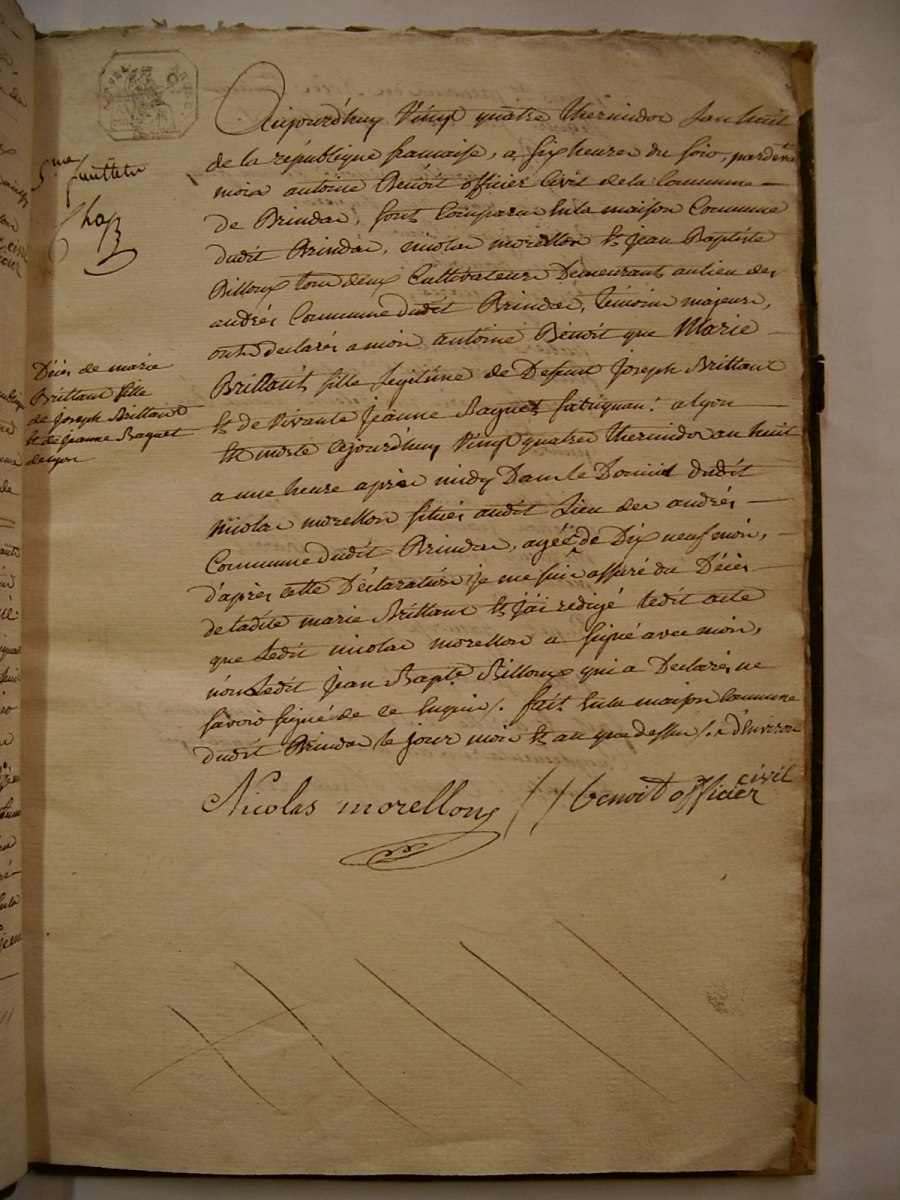 5me feuillet
Chap
Décès de marie
Brillant fille
de Joseph Brillant
et de Jeanne Baquet
de lyon
Aujourd'huy Vingt quatre thermidor l'an huit
de la république francaise, a six heures du soir, pardevant
moi antoine Benoit officier Civil de la Commune
de Brindas, sont Comparu en la maison Commune
dudit Brindas, nicolas morellon et Jean Baptiste
Billoux tous deux Cultivateurs Demeurants au lieu des
andrés Commune dudit Brindas, témoins majeurs,
ont declarés a moi antoine Benoit que Marie
Brillant fille legitime de Defunt Joseph Brillant
et de Vivante Jeanne Baquet a lyon
est morte aujourd'huy Vingt quatre thermidor an huit
a une heure après midy Dans le Domicile dudit
nicolas morellon situés audit Lieu des andrés
Commune dudit Brindas, agée de Dix neuf mois,
d'après cette Déclaration je me suis assuré du Décès
de ladite marie Brillant et j'ai redigé ledit acte
que Ledit nicolas morellon a signé avec moi,
non Ledit Jean Bapte Billoux qui a Declarés ne
savoir signé de ce enquis /. fait en la maison Commune
dudit Brindas le jour mois et an que dessus /. D'environ
Nicolas morellon // benoit officier civil